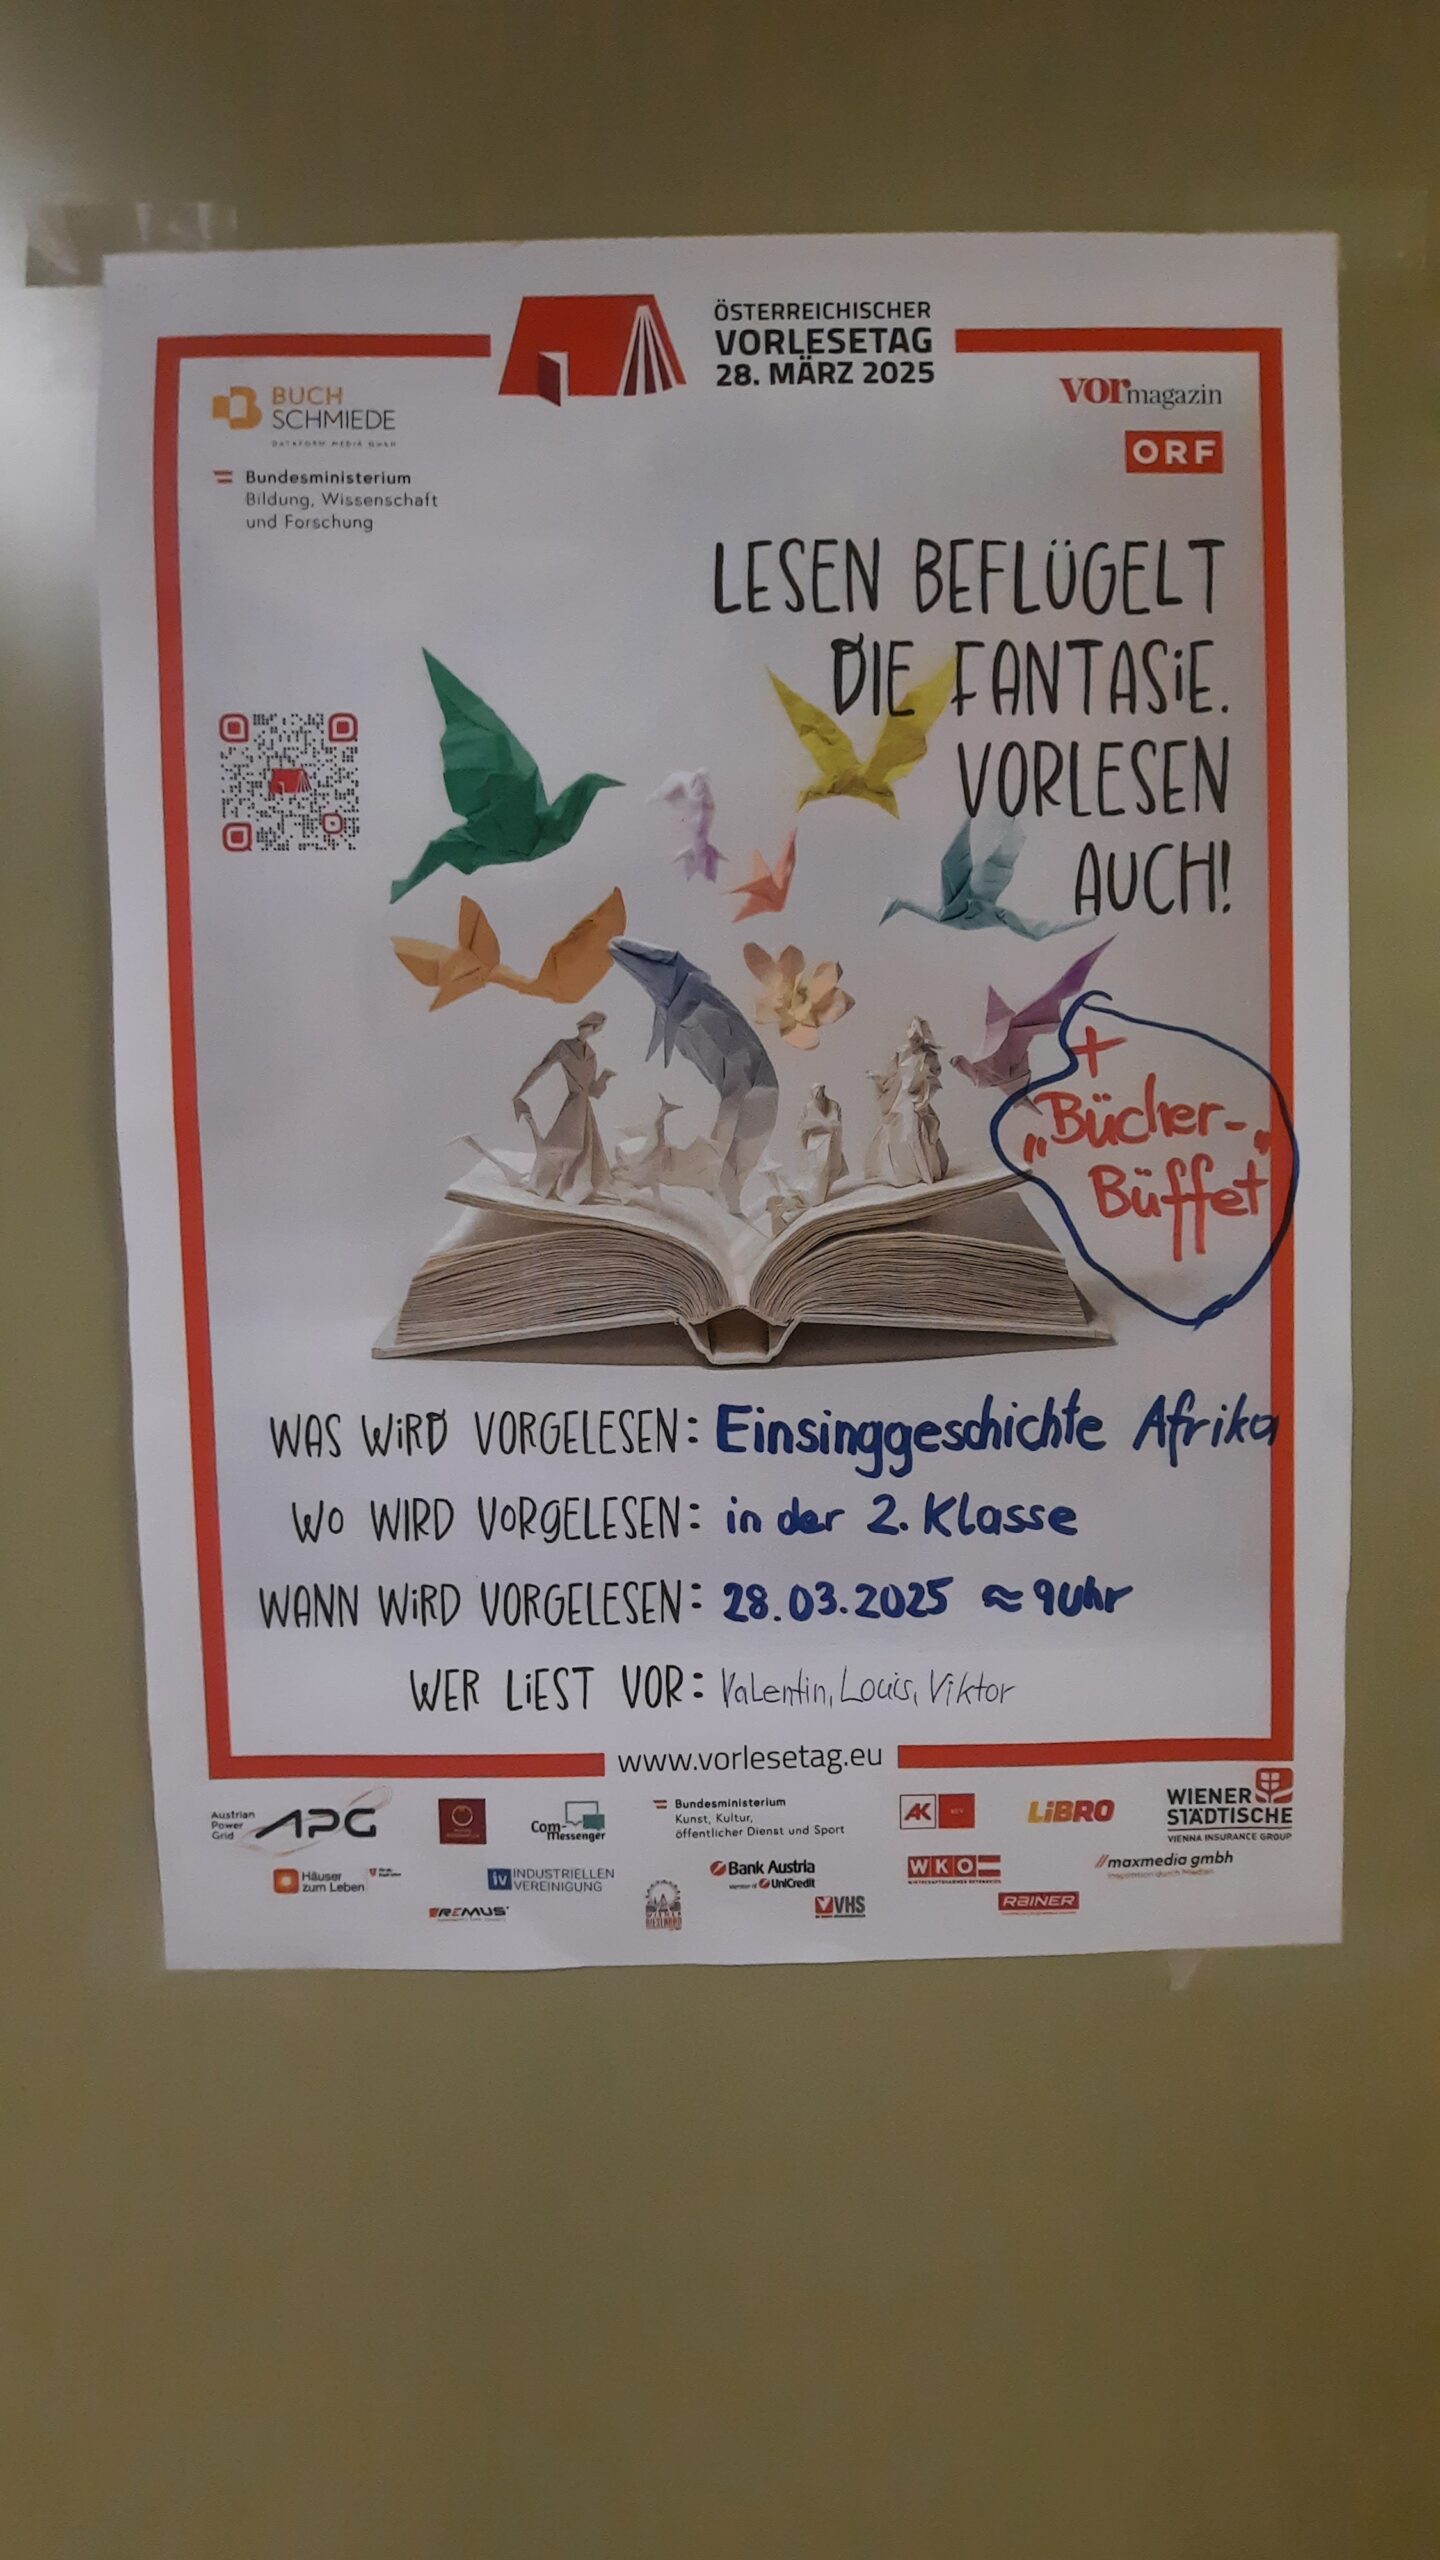 ÖSTERREICHISCHER
VORLESETAG
28. MÄRZ 2025
BUCH
SCHMIEDE
DATAFORM MEDIA GMBH
Bundesministerium
Bildung, Wissenschaft
und Forschung
VORmagazin
ORF
LESEN BEFLÜGELT
DIE FANTASIE.
VORLESEN
AUCH!
+
„Bücher-"
Büffet
WAS WIRD VORGELESEN: Einsinggeschichte Afrika
WO WIRD VORGELESEN: in der 2. Klasse
WANN WIRD VORGELESEN: 28.03.2025 ≈ 9 Uhr
WER LIEST VOR: Valentin, Louis, Viktor
www.vorlesetag.eu
Austrian
Power
Grid
APG
Com-
messenger
Bundesministerium
Kunst, Kultur,
öffentlicher Dienst und Sport
AK
LIBRO
WIENER
STÄDTISCHE
VIENNA INSURANCE GROUP
Häuser
zum Leben
iv INDUSTRIELLEN
VEREINIGUNG
Bank Austria
Member of UniCredit
WKO
WIRTSCHAFTSKAMMER ÖSTERREICH
//maxmedia gmbh
inspiration durch medien
REMUS
VHS
RAINER